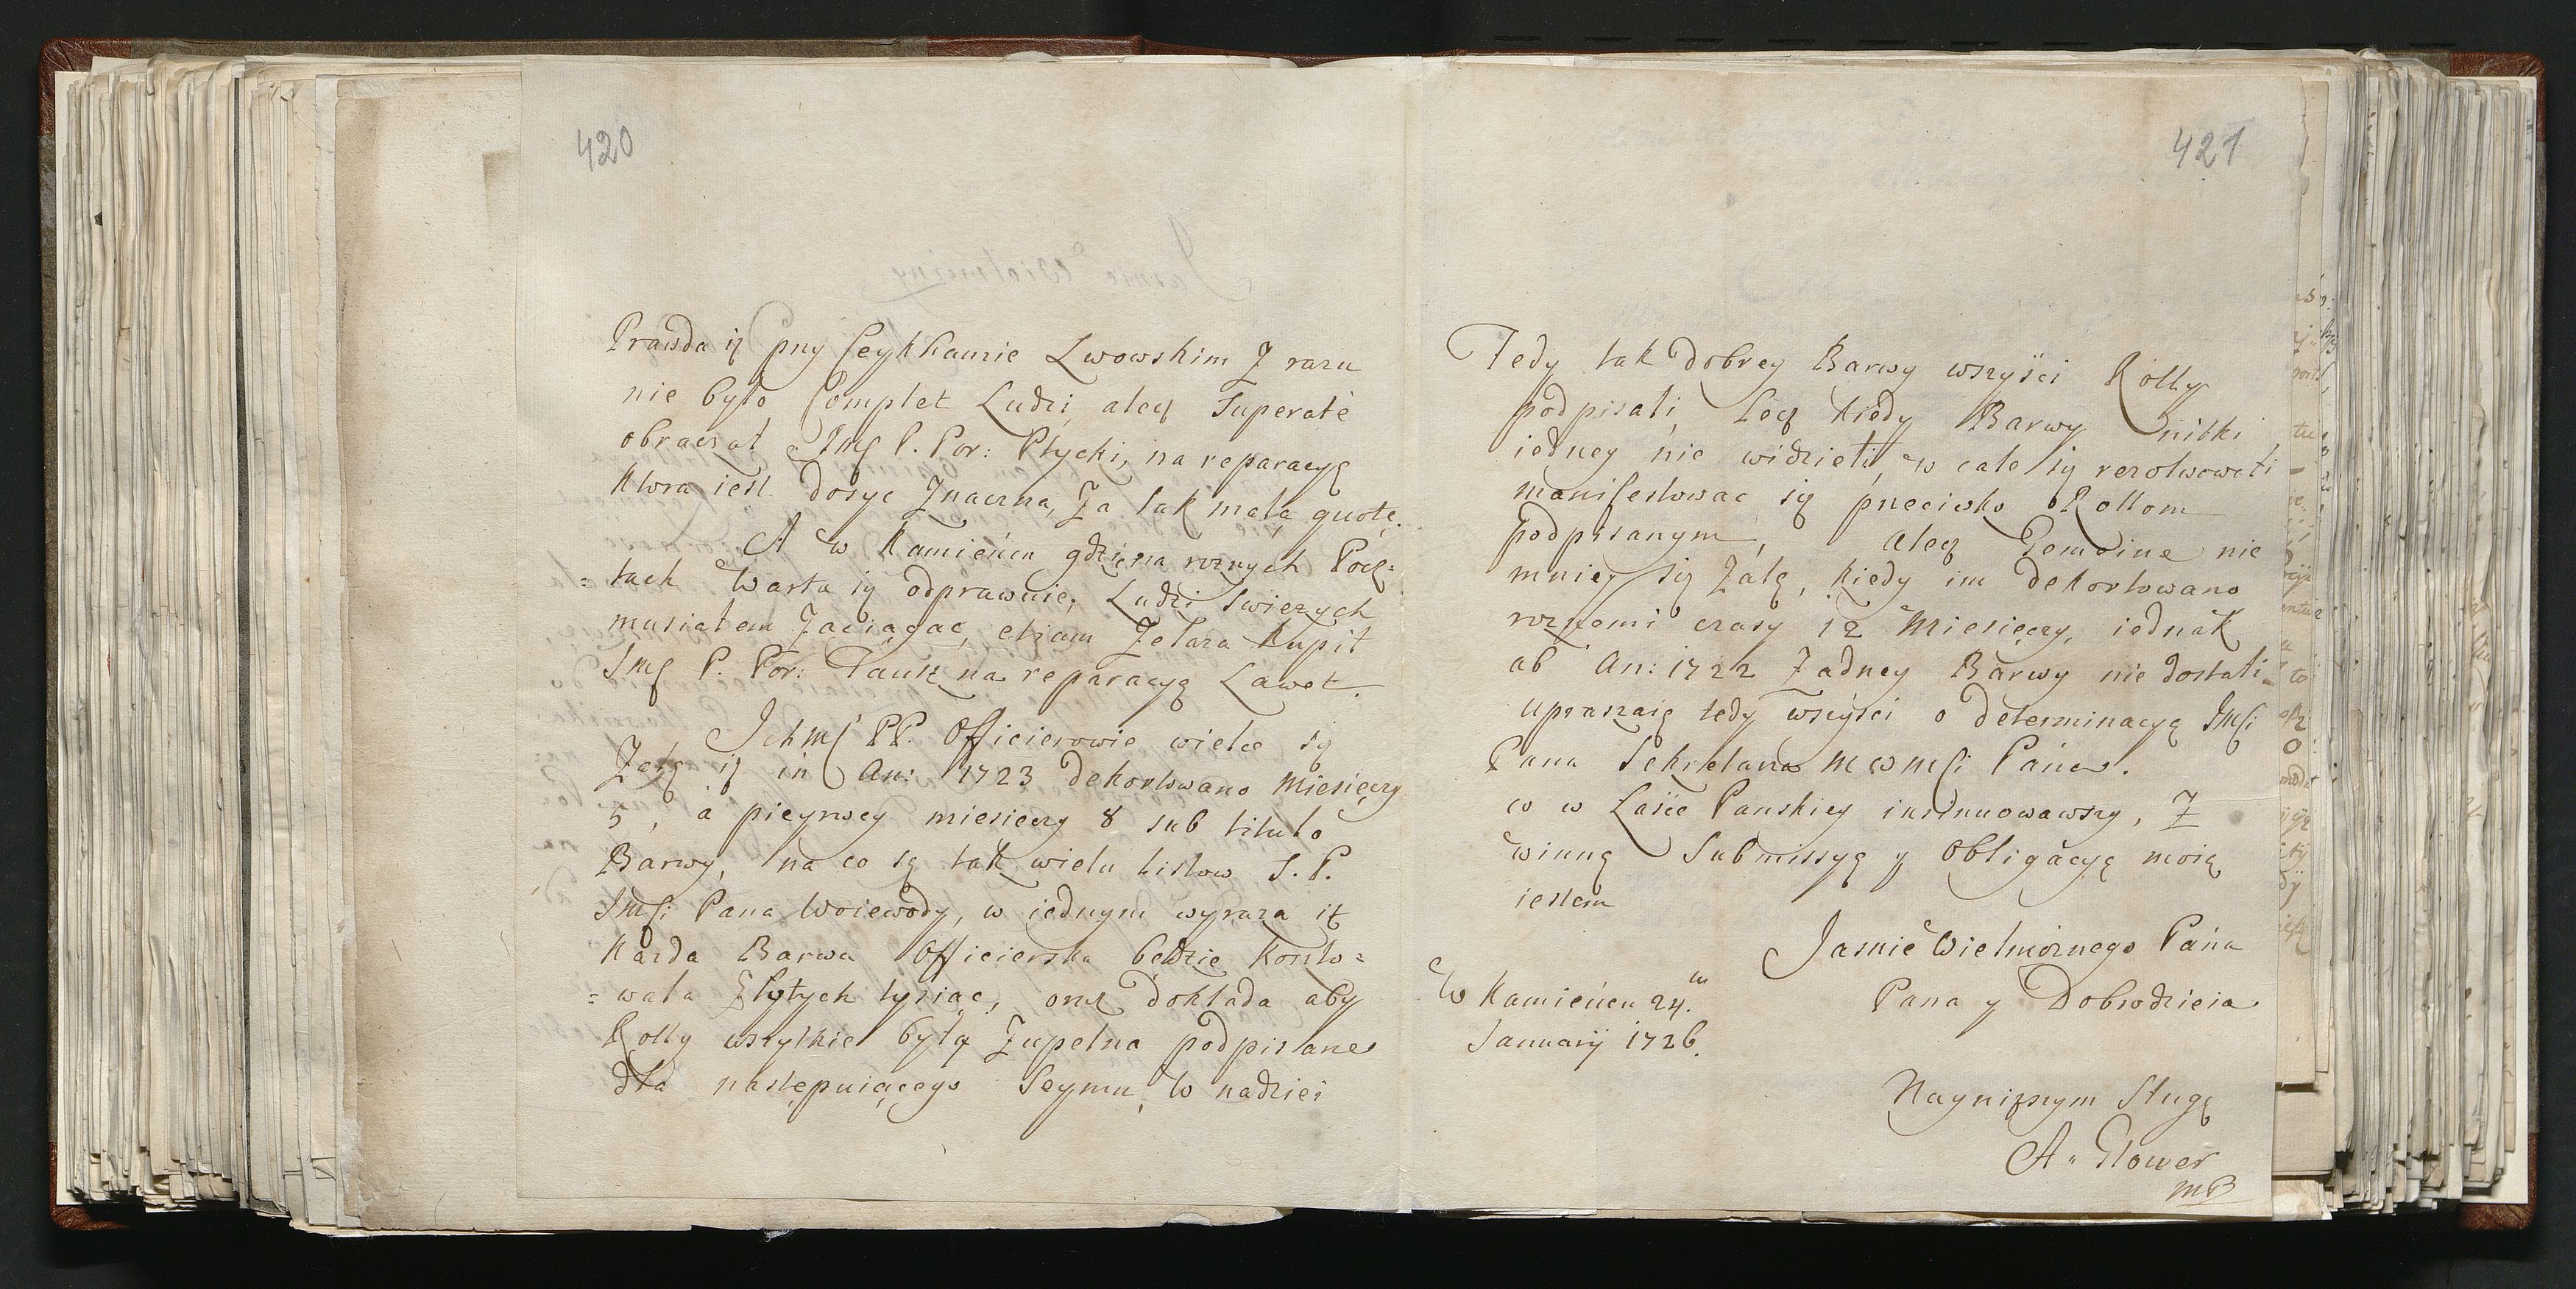 420
Prawda iż przy Ceykhauzie Lwowskim z razu
nie było Complet Ludzi, alesz Superatę
obracał Jmć P. Por: Płycki, na reparacyę
ktora iest dosyc znaczna, za tak małą quotę.
A w Kamieńcu gdzie na rożnych Pocz=
=tach Warta się odprawuie, Ludzi swieżych
musiałem zaciągać, etiam Żelaza kupił
Jmć P. Por: Tauk na reparacyę Lawet.
Ichmć PP. Officierowie wielce się
żalą iż in An: 1723 dekortowano Miesięcy
5, a pierwey miesięcy 8 sub titulo
Barwy, na co są tak wielu listow S. P.
Jmści Pana Woiewody, w iednym wyraża iż
każda Barwa Officierska będzie koszto=
=wała Złotych tysiąc, oraz dokłada aby
Rolly wszytkie były zupełna podpisane
dla następuiącego Seymu, w nadziei
421
Tedy tak dobrey Barwy wszyści Rolly
podpisali, lecz kiedy Barwy nitki
iedney nie widzieli, w cale się rezolwowali
manifestować się przeciwko Rollom
podpisanym, alesz Gemeine nie
mniey się żalą, kiedy im dekortowano
rożnemi czasy 12 Miesięcy, iednak
ab An: 1722 żadney Barwy nie dostali
upraszaią tedy wszyści o determinacyą Jmści
Pana Sekretarza M W Mści Pána.
co w Łasce Panskiey insinuowawszy, z
winną Submissyą y Obligacyą moią
iestem
Jasnie Wielmożnego Pána
Pana y Dobrodzieia
W Kamieńcu 24.
Januarij 1726.
Nayniższym Sługą
A. Glower
mp